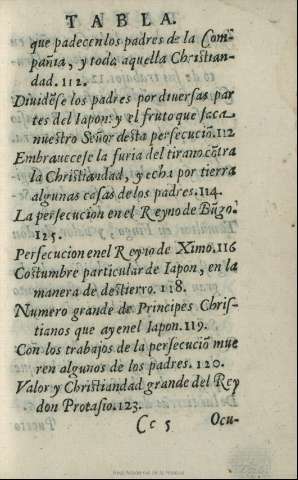 TABLA.
que padecen los padres de la Com-
pañia, y toda aquella Christian-
dad. 112.
Diuidẽse los padres por diuersas par
tes del Iapon: y el fruto que saca
nuestro Señor desta persecució. 112
Embrauecese la furia del tirano cõtra
la Christiandad, y echa por tierra
algunas casas de los padres. 114.
La persecucion en el Reyno de Bũgo.
125.
Persecucion en el Reyno de Ximo. 116
Costumbre particular de Iapon, en la
manera de destierro. 118.
Numero grande de Principes Chris-
tianos que ay en el Iapon. 119.
Con los trabajos de la persecució mue
ren algunos de los padres. 120.
Valor y Christiandad grande del Rey
don Protasio. 123.
Cc 5 Ocu-
Real Academia de la Historia